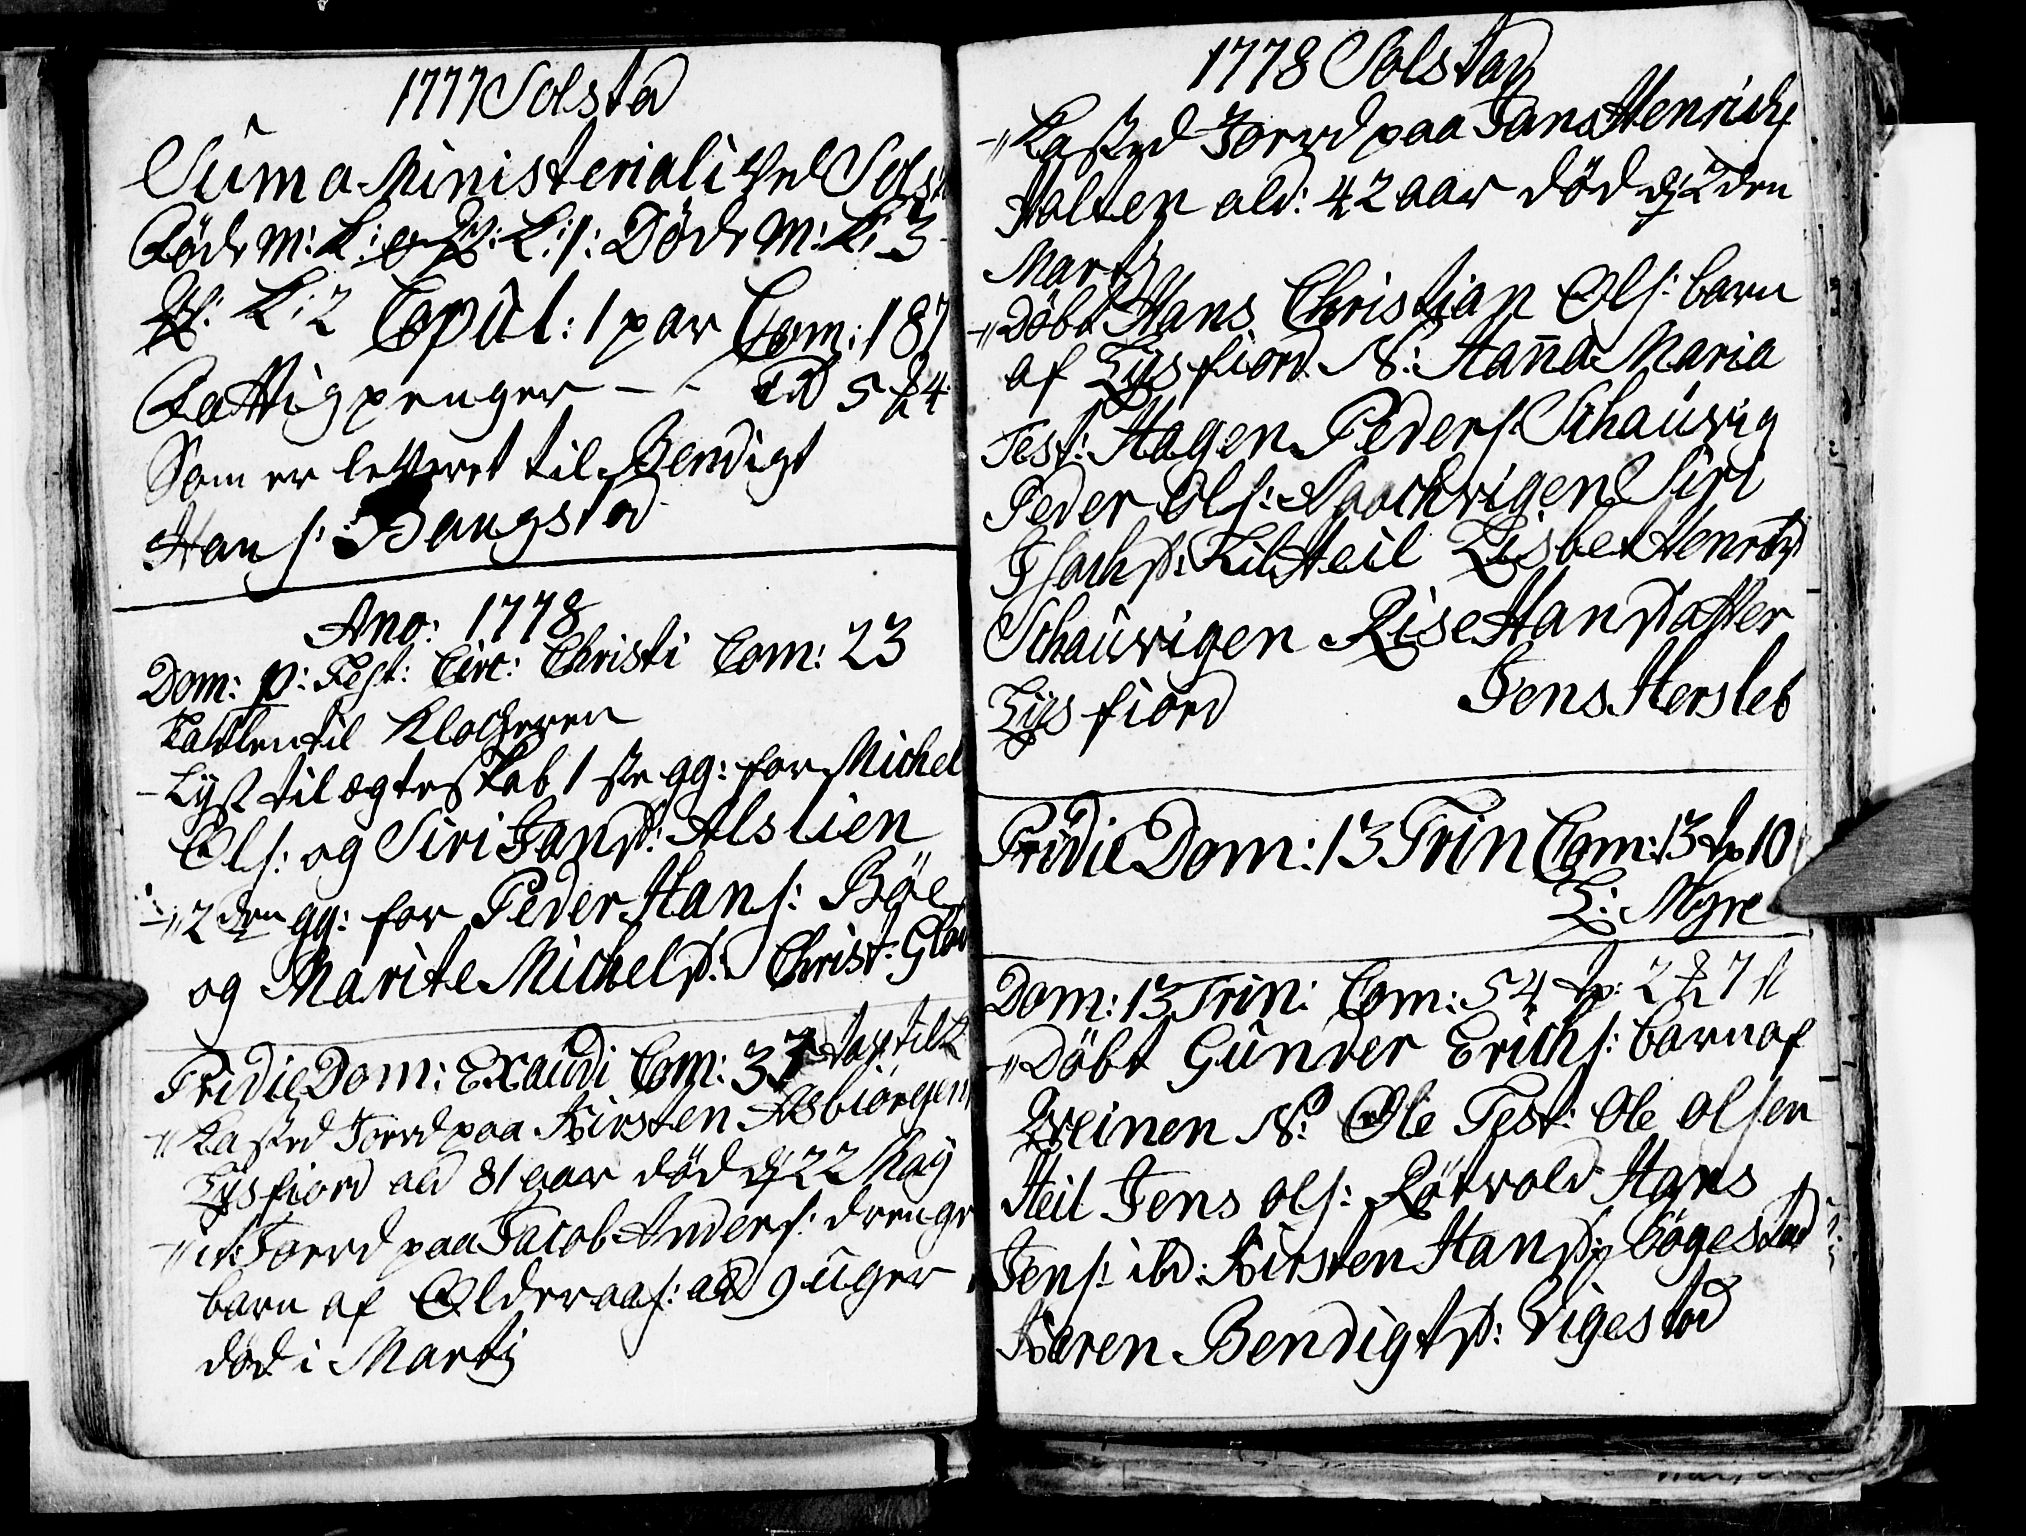 1777 Solstad
Suma Ministeriali ved Solst
Födt M: K: 0 Qv: K: 1: Döde M: K: 3
Qv: K: 2 Copul: 1 par Com: 187
Fattigpenger — - 5 ₰ 4
Som er leveret til Bendigt
Hans: Bangstad
Ano: 1778
Dom: p: Fest: Circ: Christi Com: 23
Tavlen til Klockeren
Lyst til ægteskab 1ste gg: for Michel
Ols: og Siri Jansd: Alslien
2den gg: for Peder Hans: Böe
og Marite Michelsd: Christ: Glad
Pridie Dom: Exaudi Com: 37 tavl til K
Kasted Jord paa Kirsten Asbiörgen
Lysfiord ald 81 aar död d 22 May
it: Jord paa Jacob Anders: drenge
barn af Olderaas: ald 9 uger
död i Martj
1778 Solstad
Kasted Jord paa Jans Henrichs
Halten ald: 42 aar död d 2den
Martj
Döbt Hans Christian Ols: barn
af Lysfiord N: Hanna Maria
Test: Hagen Peders: Schauvig
Peder Ols: Siri
Isachsd: Heil Lisbet Henrichsd
Schauvigen Lise Hansdatter
Lysfiord Jens Hersleb
Pridie Dom: 13 Trin Com: 13 tp 10
L: Myre
Dom: 13 Trin: Com: 54 tp: 2 ₰ 7 s
Döbt Gunder Erichs: barn af
Qveinen N: Ole Test: Ole Olsen
Heil Jens Ols: Rötvold Hans
Jens: ibd: Kirsten Hansd: Bögestad
Karen Bendigtsd: Vigestad